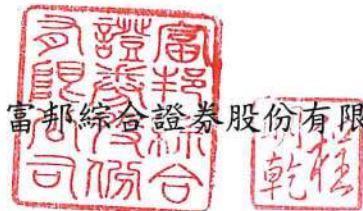 富邦綜合
證券股份
有限公司
富邦綜合證券股份有限
程
明乾